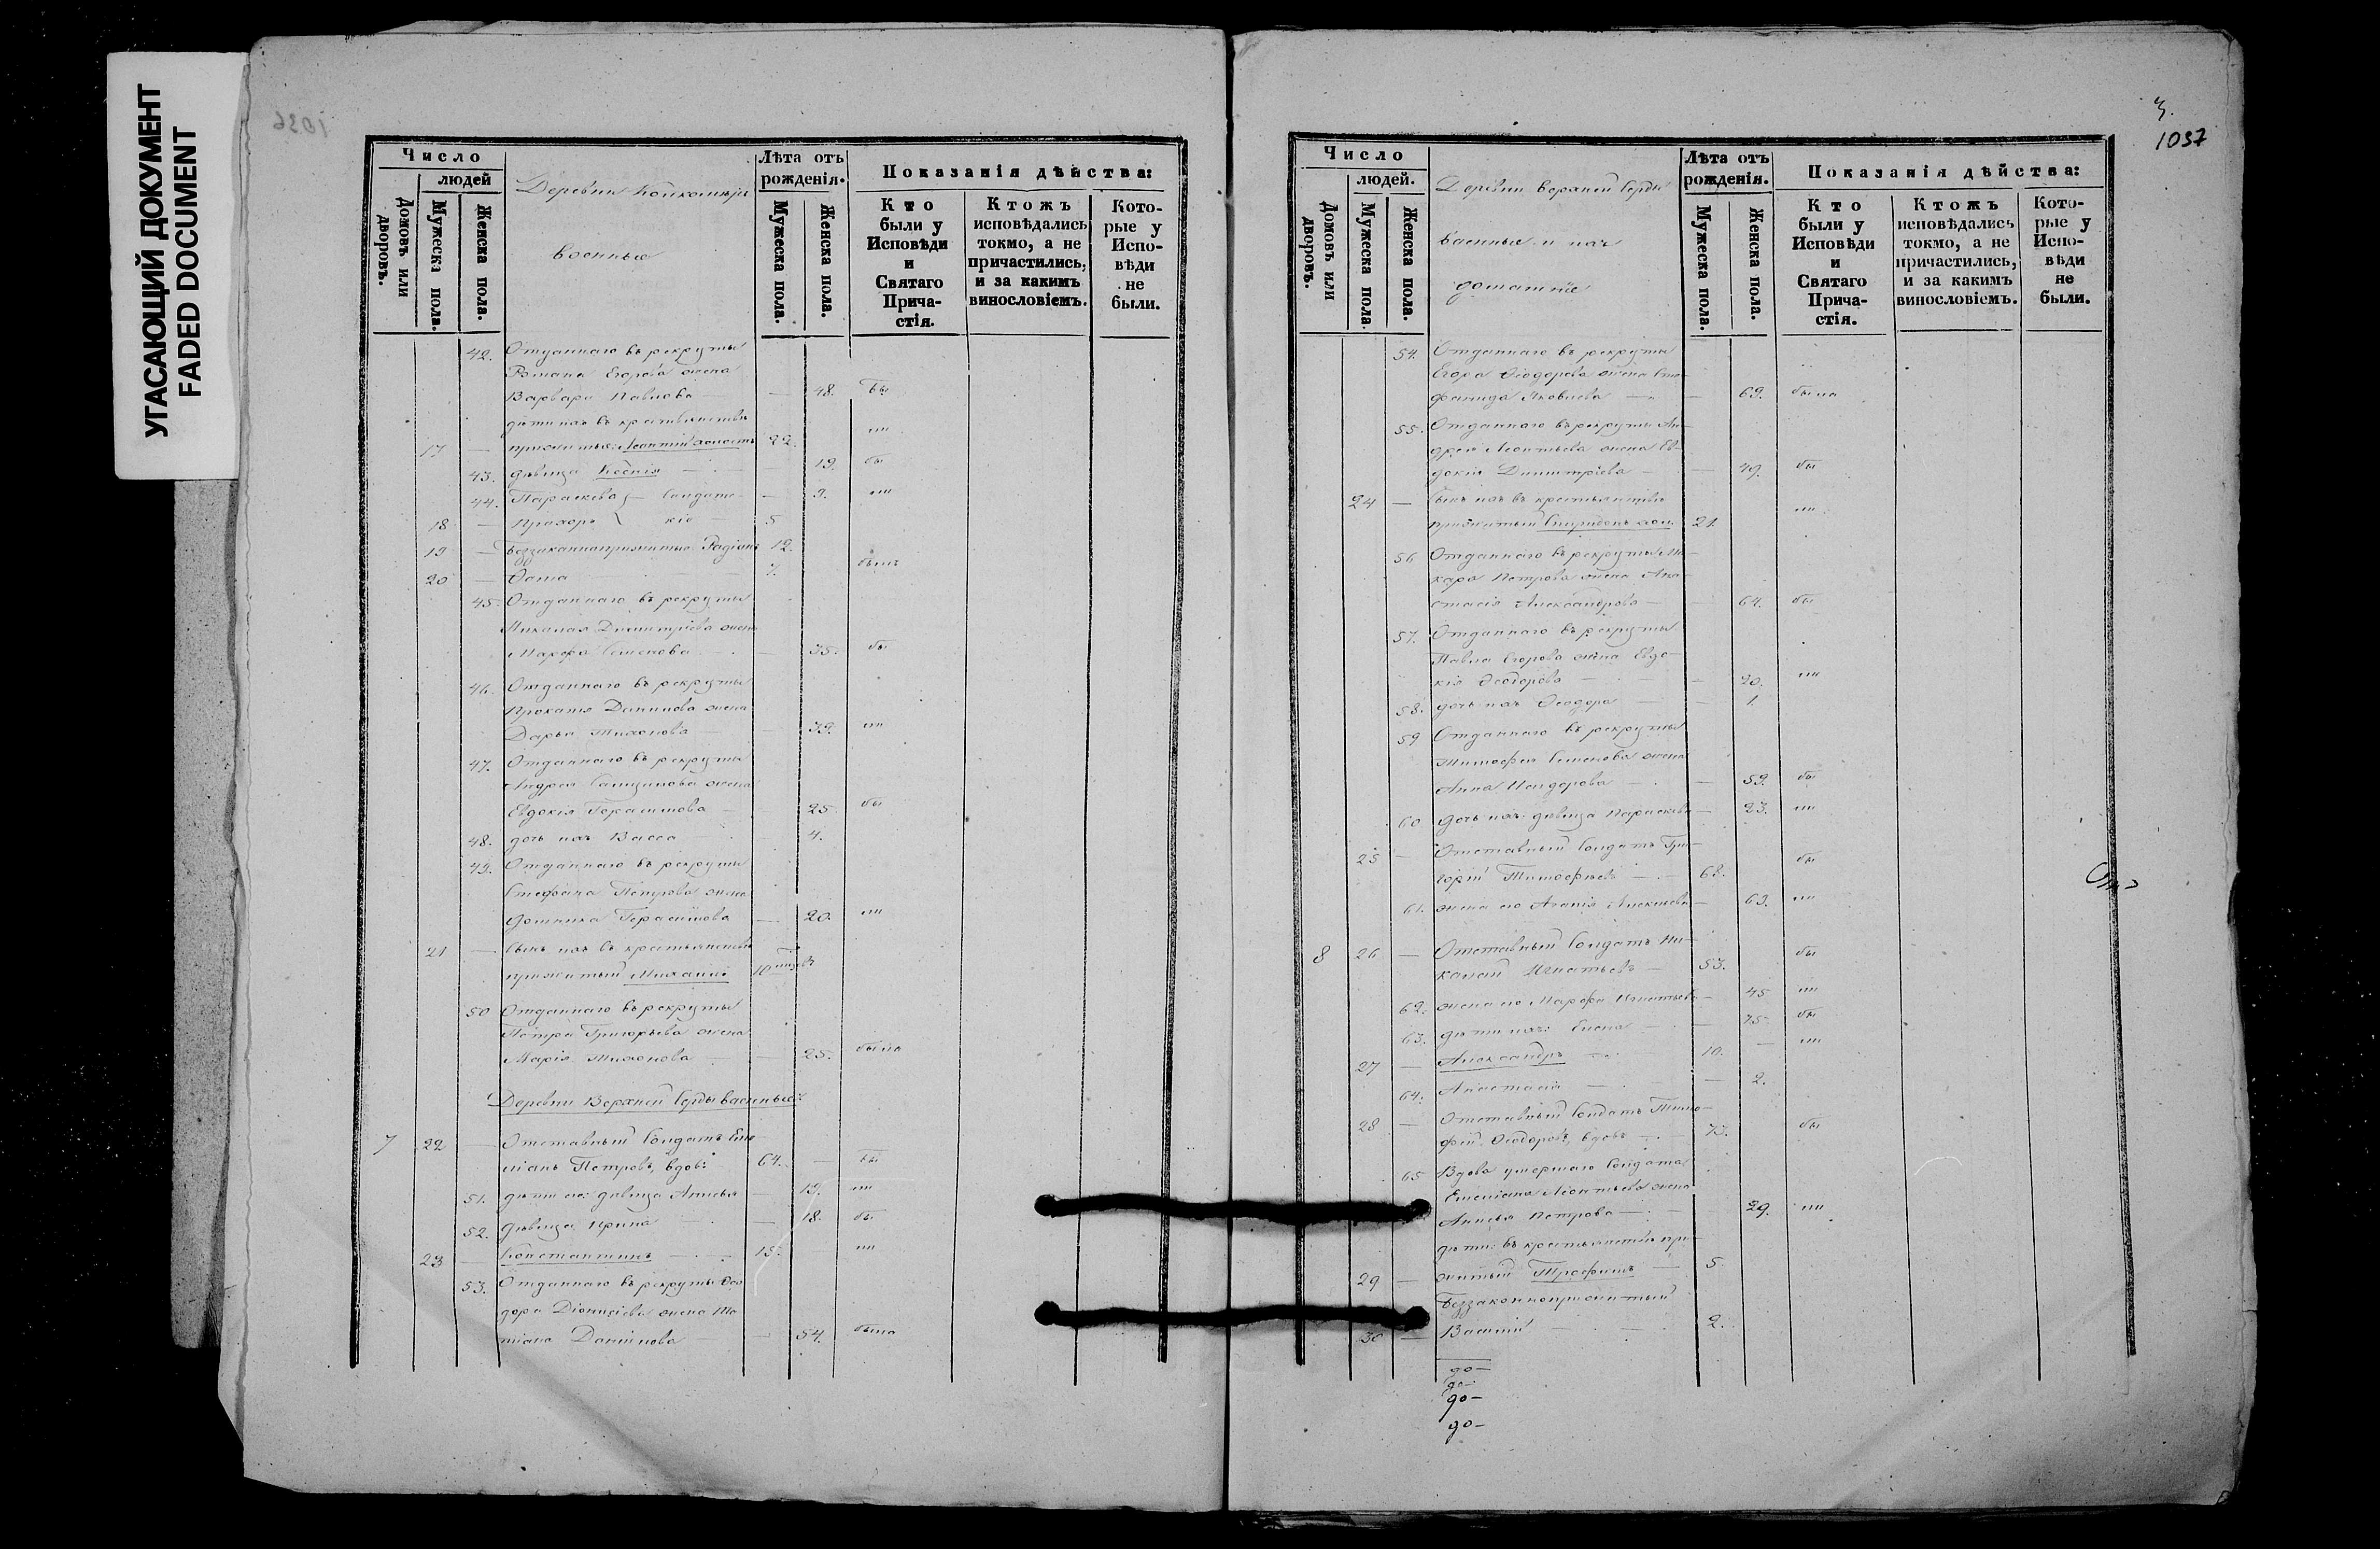 УГАСАЮЩИЙ ДОКУМЕНТ
FADED DOCUMENT
1036
Число
людей
Домовъ или дворовъ.
Мужеска пола.
Женска пола.
Деревни
военные
Лѣта отъ рожденія.
Мужеска пола.
Женска пола.
Показанія дѣйства:
Кто были у Исповѣди и Святаго Прича-стія.
Ктожъ исповѣдались токмо, а не причастились, и за какимъ винословіемъ.
Кото-рые у Испо-вѣди не были.
42. Отданнаго въ рекруты
Романа Егорова жена
Варвара Павлова — 48. бы
дѣти ихъ въ крестьянствѣ
17 — прижитые: Леонтій 22. ""
43. дѣвица Ксенія — 19. бы
44. Параскева — Солдатс- 9. ""
18 — Прохоръ кіе — 5
19 — Беззаконноприжитые Родіонъ 12.
20 — Ѳома 7. былъ
45. Отданнаго въ рекруты
Николая Димитріева жена
Марфа Семенова — 35. бы
46. Отданнаго въ рекруты
Прокопія Данилова жена
Дарья Тихонова 39. ""
47. Отданнаго въ рекруты
Андрея жена
Евдокія Герасимова — 25 бы
48. дочь ихъ Васса 4.
49. Отданнаго въ рекруты
Стефана Петрова жена
Домника Герасимова — 20. ""
21 — Сынъ ихъ въ крестьянствѣ
прижитый Михаилъ 10
50 Отданнаго въ рекруты
Петра Григорьева жена
Марія Тихонова — 25. была
Деревни Верхней Серды военные:
7 22 — Отставный Солдатъ Еме-
ліанъ Петровъ, вдовъ 64. — бы
51. дѣти его: дѣвица Анисья 19. ""
52. дѣвица Ирина — 18. бы
23 — Константинъ — 15. ""
53. Отданнаго въ рекруты Ѳео-
дора Діонисіева жена Та-
тіана Данилова — 54. была
3.
1037
Число
людей.
Домовъ или дворовъ.
Мужеска пола.
Женска пола.
Деревни Верхней Серды
военные и ихъ
домашніе
Лѣта отъ рожденія.
Мужеска пола.
Женска пола.
Показанія дѣйства:
Кто были у Исповѣди и Святаго Прича-стія.
Ктожъ исповѣдались токмо, а не причастились, и за какимъ винословіемъ.
Кото-рые у Испо-вѣди не были.
54. Отданнаго въ рекруты
Егора Ѳеодорова жена Сте-
фанида Яковлева — 69. была
55. Отданнаго въ рекруты Ан-
дрея Леонтьева жена Ев-
докія Димитріева — 49. бы
24 — Сынъ ихъ въ крестьянствѣ
прижитый Спиридонъ 21. ""
56 Отданнаго въ рекруты Ма-
кара Петрова жена Ана-
стасія Александрова — 64. бы
57. Отданнаго въ рекруты
Павла Егорова жена Евдо-
кія Ѳеодорова — 20. ""
58. дочь ихъ Ѳеодора — 1.
59 Отданнаго въ рекруты
Тимофея Семенова жена
Анна Исидорова — 59. бы
60 Дочь ихъ дѣвица Параскева — 23. ""
25 — Отставный Солдатъ Гри-
горій Тимофеевъ — 68. бы
61. жена его Агапія Алексѣева — 63. ""
8 26 — Отставный Солдатъ Ни-
колай Игнатьевъ — 53. бы
62. жена его Марфа Игнатьева — 45 ""
63. дѣти ихъ: Елена — 15. бы
27 — Александръ — 10. — ""
64. Анастасія — 2.
28 — Отставный Солдатъ Тимо-
фей Ѳеодоровъ, вдовъ — 73. бы
65 Вдова умершаго Солдата
Емеліана Леонтьева жена
Анисья Петрова — 29. ""
дѣти: въ крестьянствѣ при-
29 — житый Трофимъ — 5
Беззаконноприжитый
30 — Василій — 2.
до-
до-
до-
до-